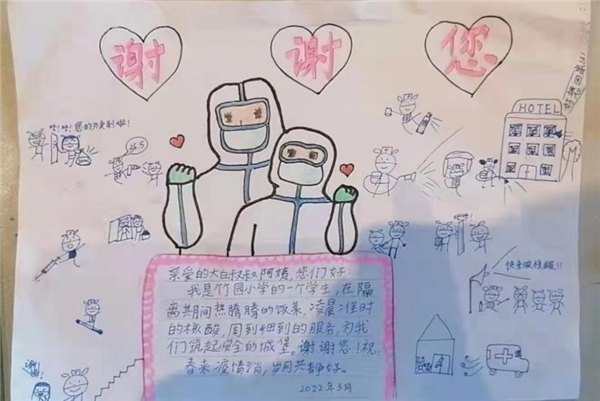 谢 谢 您
HOTEL
咚!咚!您的方便到啦!
36.5
快来做核酸!!
谢谢!
亲爱的大白叔叔阿姨,您们好
我是竹园小学的一个学生,在隔
离期间热腾腾的饭菜,凌晨准时
的核酸,周到细致的服务,为我
们筑起安全的城堡。谢谢您!祝:
春来疫情消,朝共静好。
2022年3月